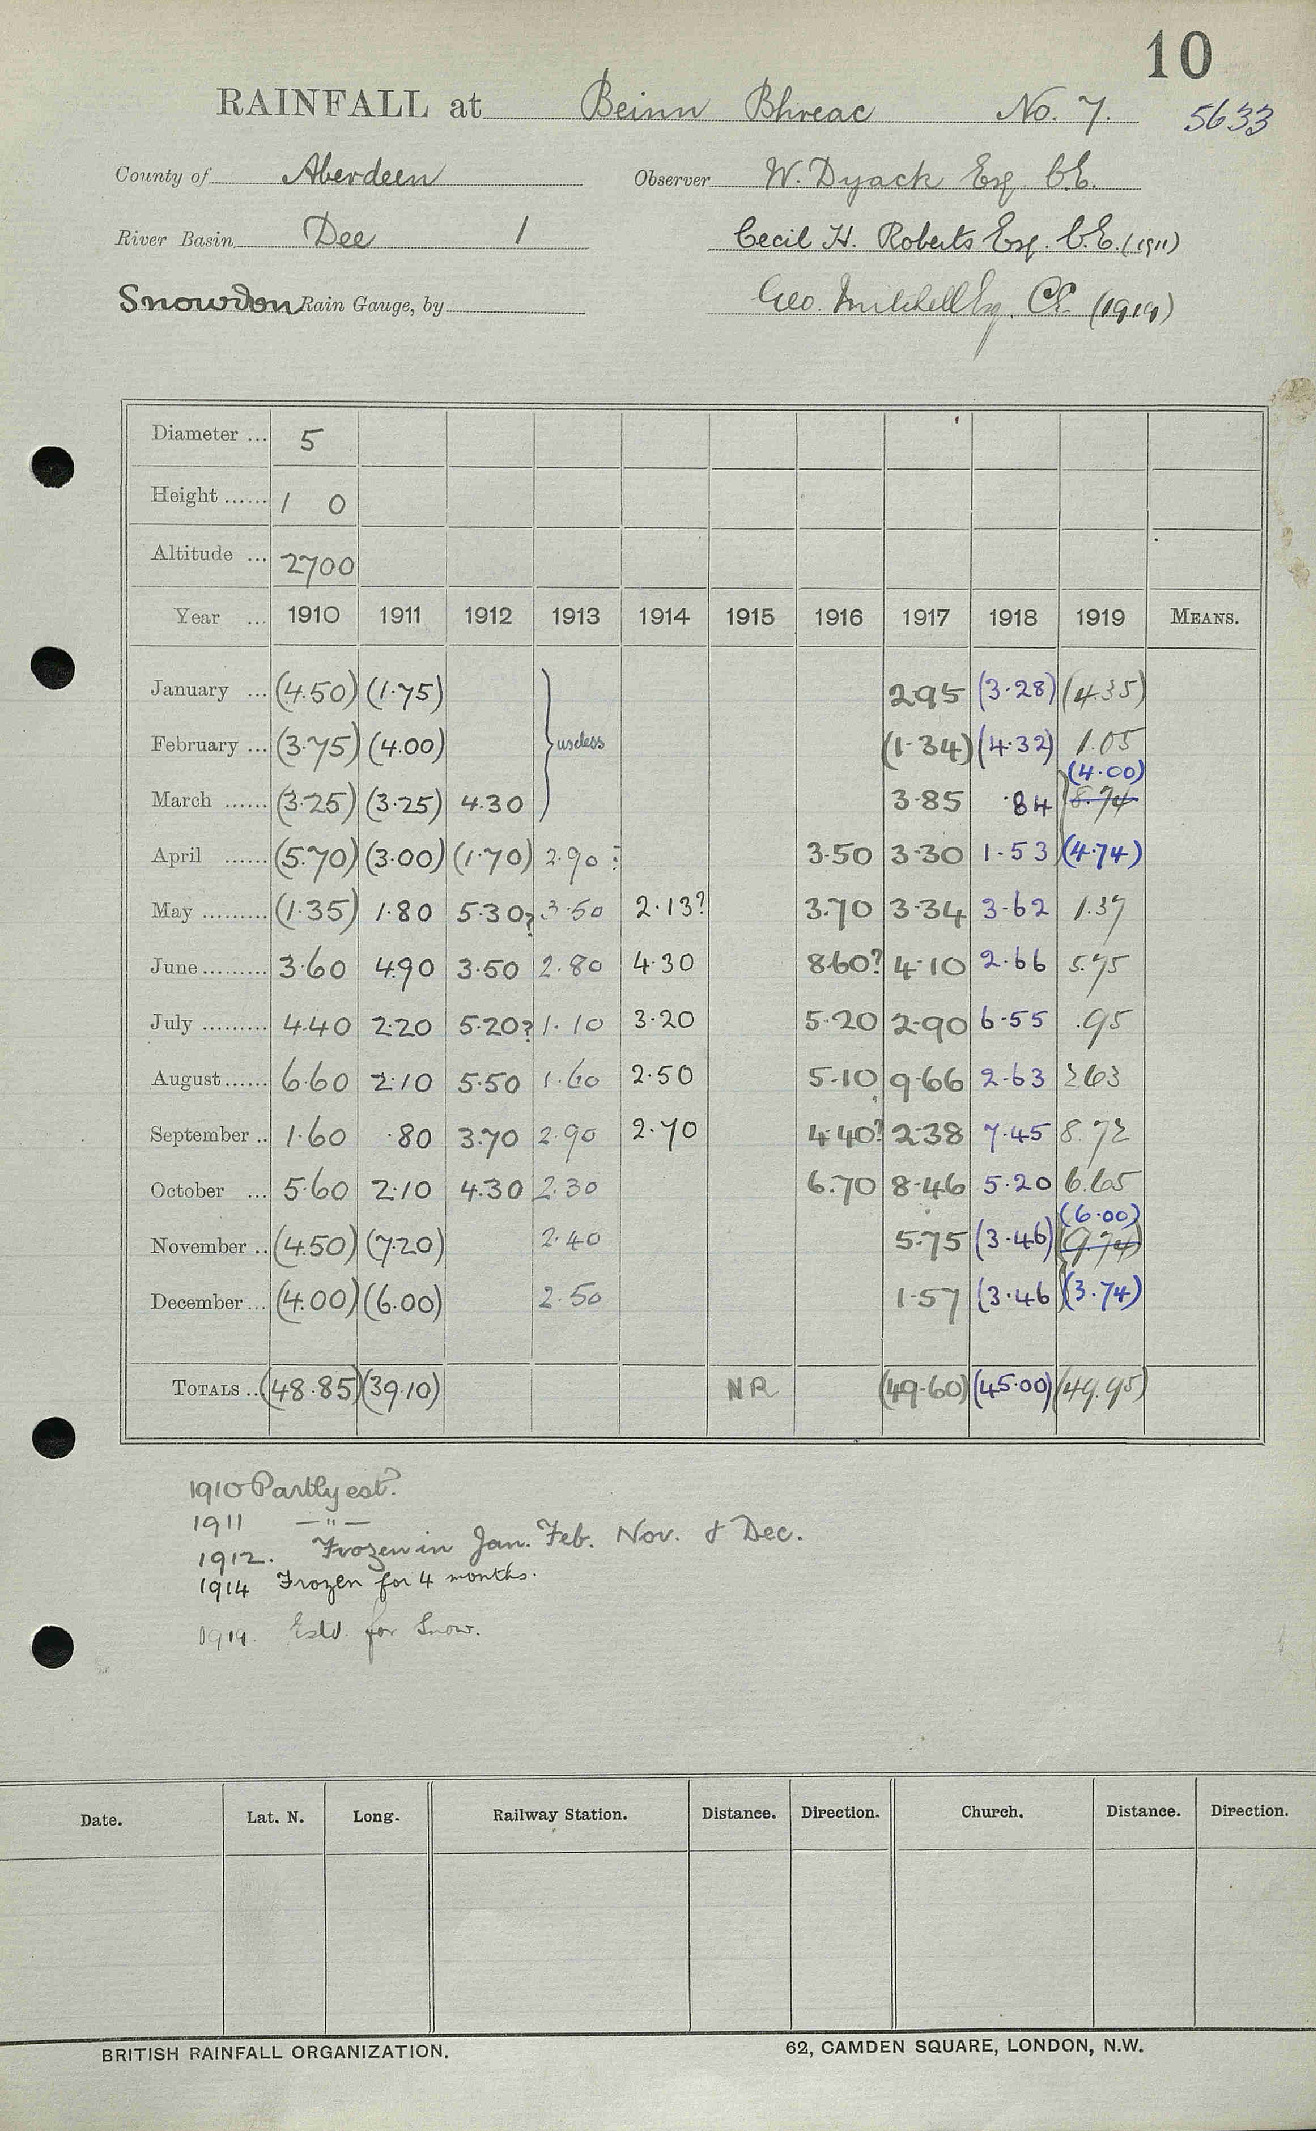 10
RAINFALL at Beinn Bhreac No. 7. 5633
County of Aberdeen Observer W. Dyack Esq. C.E.
River Basin Dee 1 Cecil H. Roberts Esq. C.E. (1911)
Snowdon Rain Gauge, by Geo. Mitchell Esq. CE. (1919)
Diameter ... 5
Height ...... 1 0
Altitude ... 2700
Year ... 1910 1911 1912 1913 1914 1915 1916 1917 1918 1919 MEANS.
January ... (4.50) (1.75) 2.95 (3.28) (4.35)
February ... (3.75) (4.00) useless (1.34) (4.32) 1.05
(4.00)
March ...... (3.25) (3.25) 4.30 3.85 .84 8.74
April ...... (5.70) (3.00) (1.70) 2.90? 3.50 3.30 1.53 (4.74)
May ......... (1.35) 1.80 5.30? 3.50 2.13? 3.70 3.34 3.62 1.37
June ......... 3.60 4.90 3.50 2.80 4.30 8.60? 4.10 2.66 5.75
July ......... 4.40 2.20 5.20? 1.10 3.20 5.20 2.90 6.55 .95
August ...... 6.60 2.10 5.50 1.60 2.50 5.10 9.66 2.63 2.63
September .. 1.60 .80 3.70 2.90 2.70 4.40? 2.38 7.45 8.72
October ... 5.60 2.10 4.30 2.30 6.70 8.46 5.20 6.65
(6.00)
November .. (4.50) (7.20) 2.40 5.75 (3.46) (9.74)
December ... (4.00) (6.00) 2.50 1.57 (3.46 (3.74)
TOTALS .. (48.85) (39.10) NR (49.60) (45.00) (49.95)
1910 Partly est.?
1911 —"—
1912. Frozen in Jan. Feb. Nov. & Dec.
1914 Frozen for 4 months.
1919. Estd. for Snow.
Date. Lat. N. Long. Railway Station. Distance. Direction. Church. Distance. Direction.
BRITISH RAINFALL ORGANIZATION. 62, CAMDEN SQUARE, LONDON, N.W.